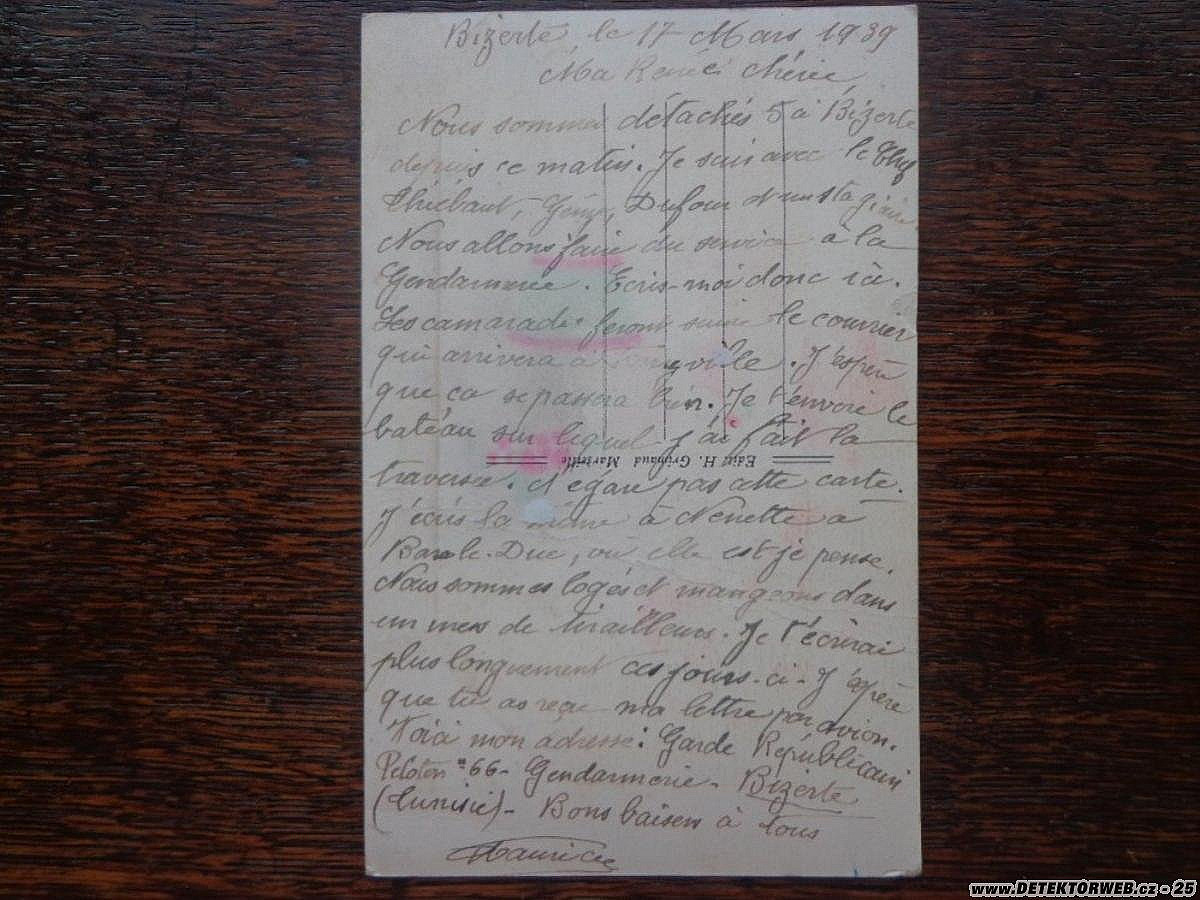 Bizerte le 17 Mars 1939
Ma Renée chérie
Nous sommes détachés 5 à Bizerte
depuis ce matin. Je suis avec le Chef
Thiébaut, Dufour et un stagiaire
Nous allons faire du service à la
Gendarmerie. Ecris-moi donc ici.
Les camarades feront suivre le courrier
qui arrivera à . J'espère
que ça se passera bien. Je t'envoie le
batéau sur lequel j'ai fait la
Edit. H. Grimaud Marseille
traversée. N'égare pas cette carte.
J'écris la même à Nénette à
Bar-le-Duc, où elle est je pense.
Nous sommes logés et mangeons dans
un mess de tirailleurs. Je t'écrirai
plus longuement ces jours-ci - J'espère
que tu as reçu ma lettre par avion.
Voià mon adresse: Garde Républicain
Peloton 66 - Gendarmerie - Bizerte
(Tunisie) - Bons baisers à tous
Maurice
www.DETEKTORWEB.cz - 25